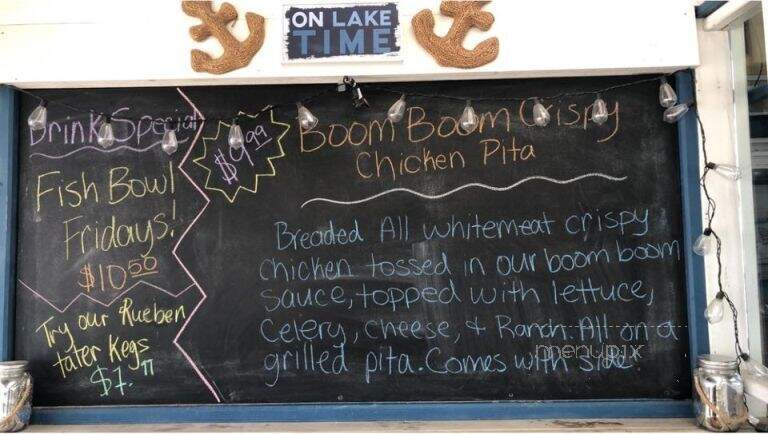 ON LAKE
TIME
Drink Special
Fish Bowl
Fridays!
$10.50
Try our Rueben
tater Kegs
$7.77
$9.99
Boom Boom Crispy
Chicken Pita
Breaded All whitemeat crispy
chicken tossed in our boom boom
sauce, topped with lettuce,
Celery, cheese, + Ranch. All on a
grilled pita. Comes with side.
menupix